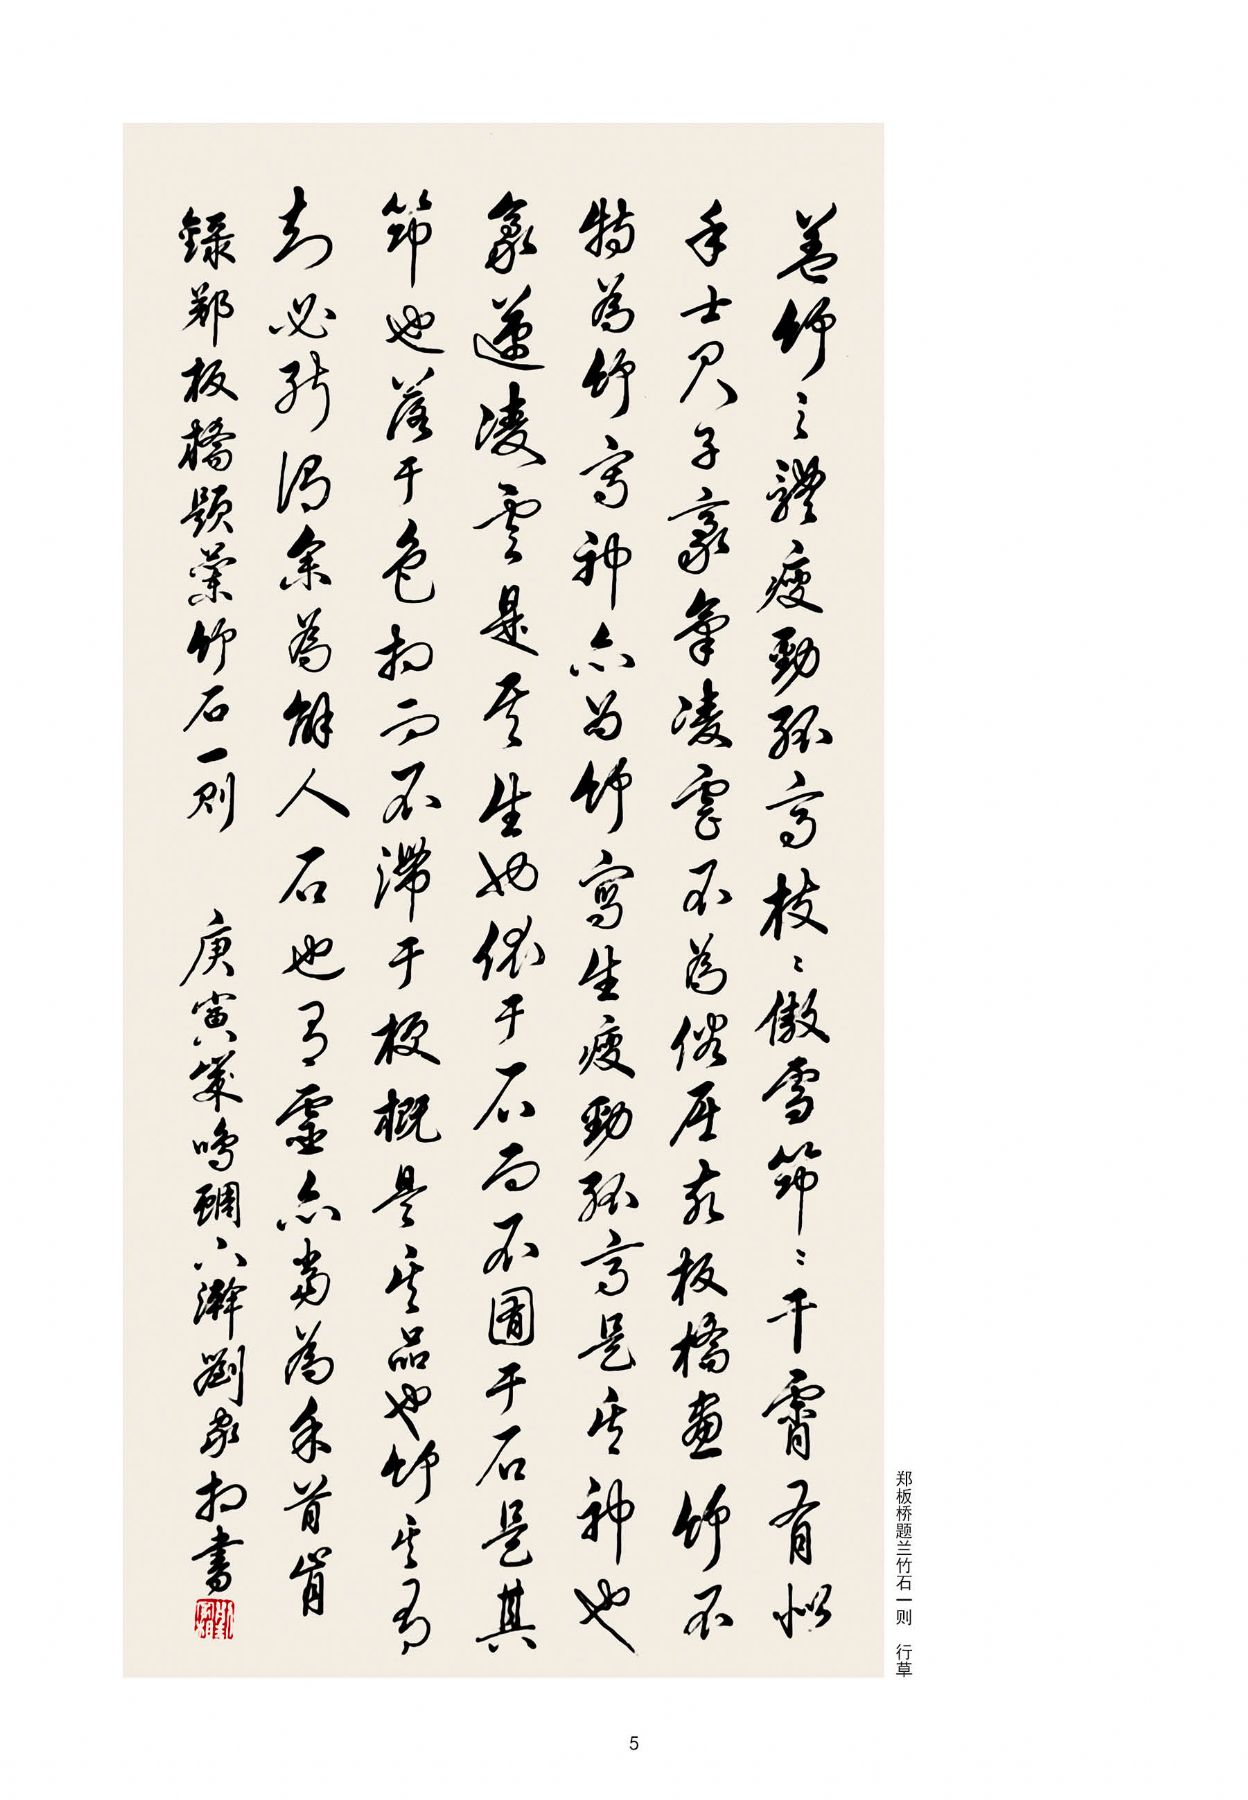 盖竹之體瘦勁孤高枝〻傲雪節〻干霄有似
乎士君子豪氣凌雲不為俗屈故板橋畫竹不
特為竹寫神亦為竹寫生瘦勁孤高是其神也
豪邁凌雲是其生也依于石而不囿于石是其
節也落于色相而不滯于梗概是其品也竹其有
知必能謂余為解人石也有靈亦當為余首肯
錄鄭板橋題蘭竹石一則 庚寅歲鳴蜩六澣劉家相書
郑板桥题兰竹石一则 行草
5